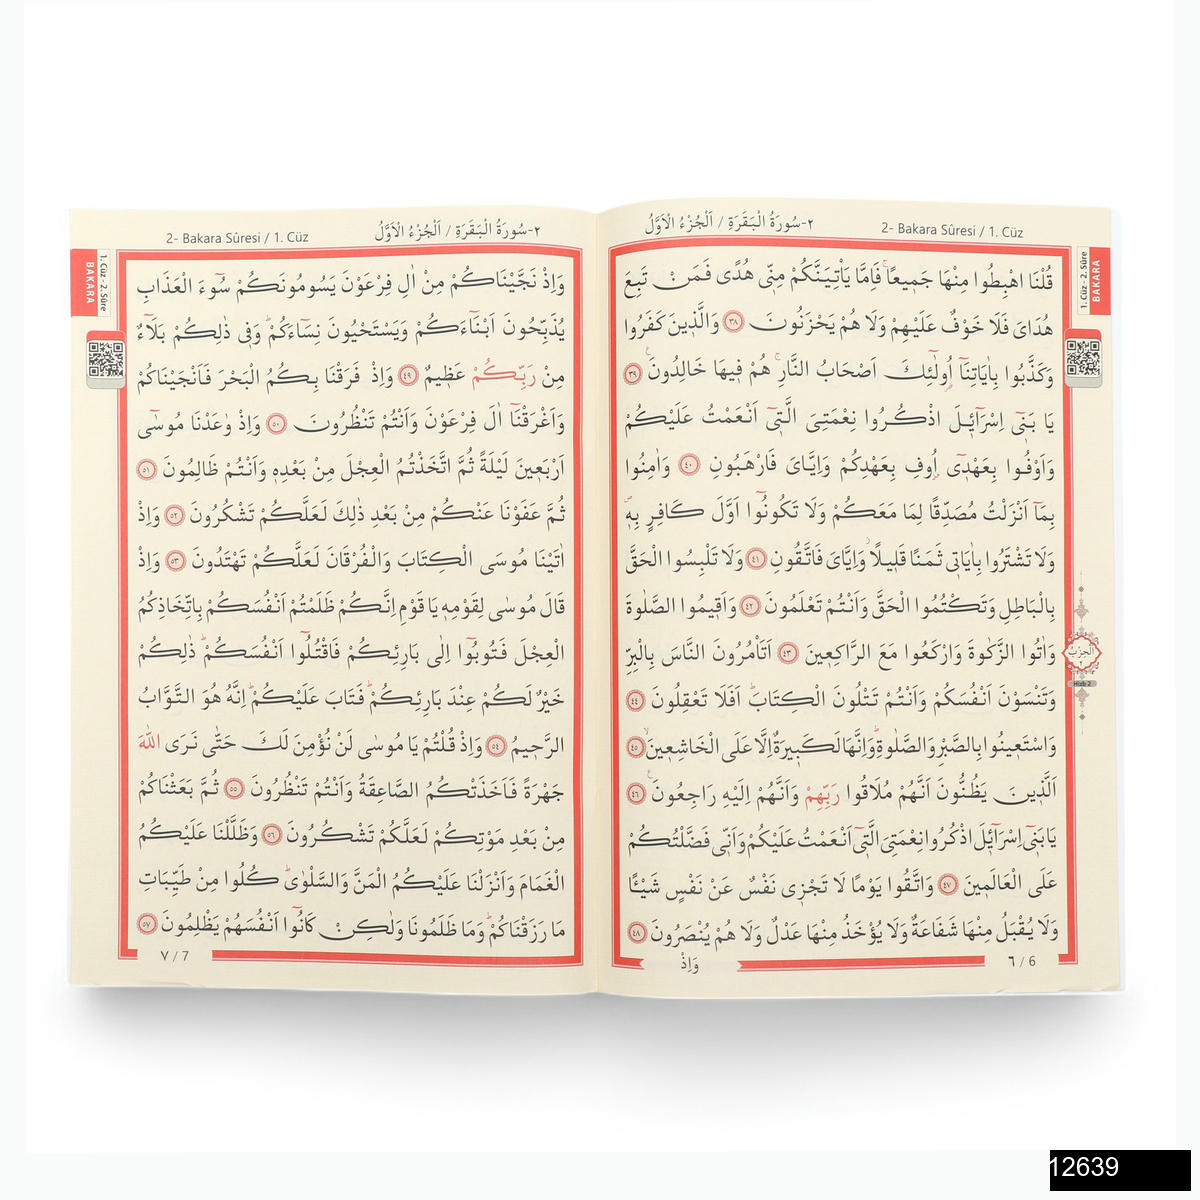 ٢-سُورَةُ الْبَقَرَةِ / اَلْجُزْءُ الْاَوَّلُ
2- Bakara Sûresi / 1. Cüz
1. Cüz - 2. Sûre
BAKARA
قُلْنَا اهْبِطُوا مِنْهَا جَم۪يعًاۚ فَاِمَّا يَأْتِيَنَّكُمْ مِنّ۪ي هُدًى فَمَنْ تَبِعَ
هُدَايَ فَلَا خَوْفٌ عَلَيْهِمْ وَلَا هُمْ يَحْزَنُونَ ﴿٣٨﴾ وَالَّذ۪ينَ كَفَرُوا
وَكَذَّبُوا بِاٰيَاتِنَٓا اُو۬لٰٓئِكَ اَصْحَابُ النَّارِۚ هُمْ ف۪يهَا خَالِدُونَ۟ ﴿٣٩﴾
يَا بَن۪ٓي اِسْرَٓائ۪لَ اذْكُرُوا نِعْمَتِيَ الَّت۪ٓي اَنْعَمْتُ عَلَيْكُمْ
وَاَوْفُوا بِعَهْد۪ٓي اُو۫فِ بِعَهْدِكُمْ وَاِيَّايَ فَارْهَبُونِ ﴿٤٠﴾ وَاٰمِنُوا
بِمَٓا اَنْزَلْتُ مُصَدِّقًا لِمَا مَعَكُمْ وَلَا تَكُونُٓوا اَوَّلَ كَافِرٍ بِه۪ۖ
وَلَا تَشْتَرُوا بِاٰيَات۪ي ثَمَنًا قَل۪يلًاۘ وَاِيَّايَ فَاتَّقُونِ ﴿٤١﴾ وَلَا تَلْبِسُوا الْحَقَّ
بِالْبَاطِلِ وَتَكْتُمُوا الْحَقَّ وَاَنْتُمْ تَعْلَمُونَ ﴿٤٢﴾ وَاَق۪يمُوا الصَّلٰوةَ
وَاٰتُوا الزَّكٰوةَ وَارْكَعُوا مَعَ الرَّاكِع۪ينَ ﴿٤٣﴾ اَتَأْمُرُونَ النَّاسَ بِالْبِرِّ
وَتَنْسَوْنَ اَنْفُسَكُمْ وَاَنْتُمْ تَتْلُونَ الْكِتَابَۜ اَفَلَا تَعْقِلُونَ ﴿٤٤﴾
وَاسْتَع۪ينُوا بِالصَّبْرِ وَالصَّلٰوةِۜ وَاِنَّهَا لَكَب۪يرَةٌ اِلَّا عَلَى الْخَاشِع۪ينَۙ ﴿٤٥﴾
اَلَّذ۪ينَ يَظُنُّونَ اَنَّهُمْ مُلَاقُوا رَبِّهِمْ وَاَنَّهُمْ اِلَيْهِ رَاجِعُونَ۟ ﴿٤٦﴾
يَا بَن۪ٓي اِسْرَٓائ۪لَ اذْكُرُوا نِعْمَتِيَ الَّت۪ٓي اَنْعَمْتُ عَلَيْكُمْ وَاَنّ۪ي فَضَّلْتُكُمْ
عَلَى الْعَالَم۪ينَ ﴿٤٧﴾ وَاتَّقُوا يَوْمًا لَا تَجْز۪ي نَفْسٌ عَنْ نَفْسٍ شَيْـًٔا
وَلَا يُقْبَلُ مِنْهَا شَفَاعَةٌ وَلَا يُؤْخَذُ مِنْهَا عَدْلٌ وَلَا هُمْ يُنْصَرُونَ ﴿٤٨﴾
الْحِزْبُ
٢
Hizb 2
٦ / 6
وَاِذْ
٢-سُورَةُ الْبَقَرَةِ / اَلْجُزْءُ الْاَوَّلُ
2- Bakara Sûresi / 1. Cüz
1. Cüz - 2. Sûre
BAKARA
وَاِذْ نَجَّيْنَاكُمْ مِنْ اٰلِ فِرْعَوْنَ يَسُومُونَكُمْ سُٓوءَ الْعَذَابِ
يُذَبِّحُونَ اَبْنَٓاءَكُمْ وَيَسْتَحْيُونَ نِسَٓاءَكُمْۜ وَف۪ي ذٰلِكُمْ بَلَٓاءٌ
مِنْ رَبِّكُمْ عَظ۪يمٌ ﴿٤٩﴾ وَاِذْ فَرَقْنَا بِكُمُ الْبَحْرَ فَاَنْجَيْنَاكُمْ
وَاَغْرَقْنَٓا اٰلَ فِرْعَوْنَ وَاَنْتُمْ تَنْظُرُونَ ﴿٥٠﴾ وَاِذْ وٰعَدْنَا مُوسٰٓى
اَرْبَع۪ينَ لَيْلَةً ثُمَّ اتَّخَذْتُمُ الْعِجْلَ مِنْ بَعْدِه۪ وَاَنْتُمْ ظَالِمُونَ ﴿٥١﴾
ثُمَّ عَفَوْنَا عَنْكُمْ مِنْ بَعْدِ ذٰلِكَ لَعَلَّكُمْ تَشْكُرُونَ ﴿٥٢﴾ وَاِذْ
اٰتَيْنَا مُوسَى الْكِتَابَ وَالْفُرْقَانَ لَعَلَّكُمْ تَهْتَدُونَ ﴿٥٣﴾ وَاِذْ
قَالَ مُوسٰى لِقَوْمِه۪ يَا قَوْمِ اِنَّكُمْ ظَلَمْتُمْ اَنْفُسَكُمْ بِاتِّخَاذِكُمُ
الْعِجْلَ فَتُوبُٓوا اِلٰى بَارِئِكُمْ فَاقْتُلُٓوا اَنْفُسَكُمْۜ ذٰلِكُمْ
خَيْرٌ لَكُمْ عِنْدَ بَارِئِكُمْۜ فَتَابَ عَلَيْكُمْۜ اِنَّهُ هُوَ التَّوَّابُ
الرَّح۪يمُ ﴿٥٤﴾ وَاِذْ قُلْتُمْ يَا مُوسٰى لَنْ نُؤْمِنَ لَكَ حَتّٰى نَرَى اللّٰهَ
جَهْرَةً فَاَخَذَتْكُمُ الصَّاعِقَةُ وَاَنْتُمْ تَنْظُرُونَ ﴿٥٥﴾ ثُمَّ بَعَثْنَاكُمْ
مِنْ بَعْدِ مَوْتِكُمْ لَعَلَّكُمْ تَشْكُرُونَ ﴿٥٦﴾ وَظَلَّلْنَا عَلَيْكُمُ
الْغَمَامَ وَاَنْزَلْنَا عَلَيْكُمُ الْمَنَّ وَالسَّلْوٰىۜ كُلُوا مِنْ طَيِّبَاتِ
مَا رَزَقْنَاكُمْۜ وَمَا ظَلَمُونَا وَلٰكِنْ كَانُٓوا اَنْفُسَهُمْ يَظْلِمُونَ ﴿٥٧﴾
٧ / 7
12639